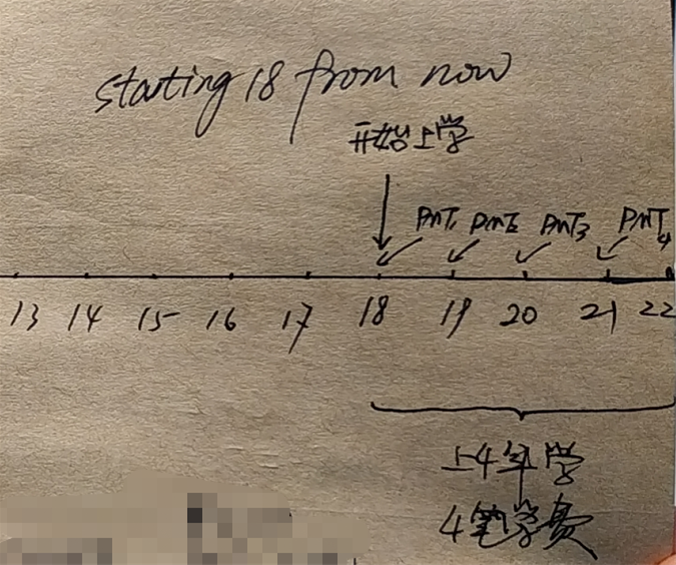 starting 18 from now
开始上学
PMT1 PMT2 PMT3 PMT4
13 14 15 16 17 18 19 20 21 22
上4年学
4笔学费